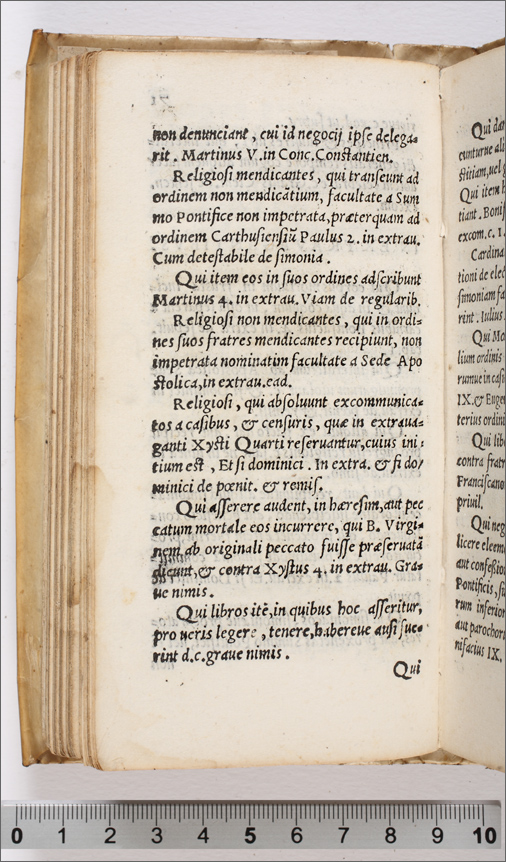 non denunciant, cui id negocij ipse delega-
rit. Martinus V. in Conc. Constantien.
Religiosi mendicantes, qui transeunt ad
ordinem non mendicātium, facultate a Sum
mo Pontifice non impetrata, præterquam ad
ordinem Carthusiensiū Paulus 2. in extrau.
Cum detestabile de simonia.
Qui item eos in suos ordines adscribunt
Martinus 4. in extrau. Viam de regularib.
Religiosi non mendicantes, qui in ordi-
nes suos fratres mendicantes recipiunt, non
impetrata nominatim facultate a Sede Apo
stolica, in extrau. ead.
Religiosi, qui absoluunt excommunica-
tos a casibus, & censuris, quæ in extraua-
ganti Xysti Quarti reseruantur, cuius ini-
tium est, Et si dominici. In extra. & si do/
minici de pœnit. & remis.
Qui asserere audent, in hæresim, aut pec
catum mortale eos incurrere, qui B. Virgi-
nem ab originali peccato fuisse præseruatā
dicunt, & contra Xystus 4. in extrau. Gra-
ue nimis.
Qui libros itē, in quibus hoc asseritur,
pro ueris legere, tenere, habereue ausi fue-
rint d.c. graue nimis.
Qui
Qui dan
cunturne al
stitiam, uel g
Qui item h
tiant. Bonif
excom. c. 1.
Cardina
tioni de elec
simoniam fa
rint. Iulius
Qui Mo
lium ordinis
rumue in casi
IX. & Eugen
terius ordini
Qui lib
contra fratr
Franciscano
priuil.
Qui neg
licere eleem
aut confessio
Pontificis, si
rum inferior
aut parochor
nifacius IX.
0 1 2 3 4 5 6 7 8 9 10